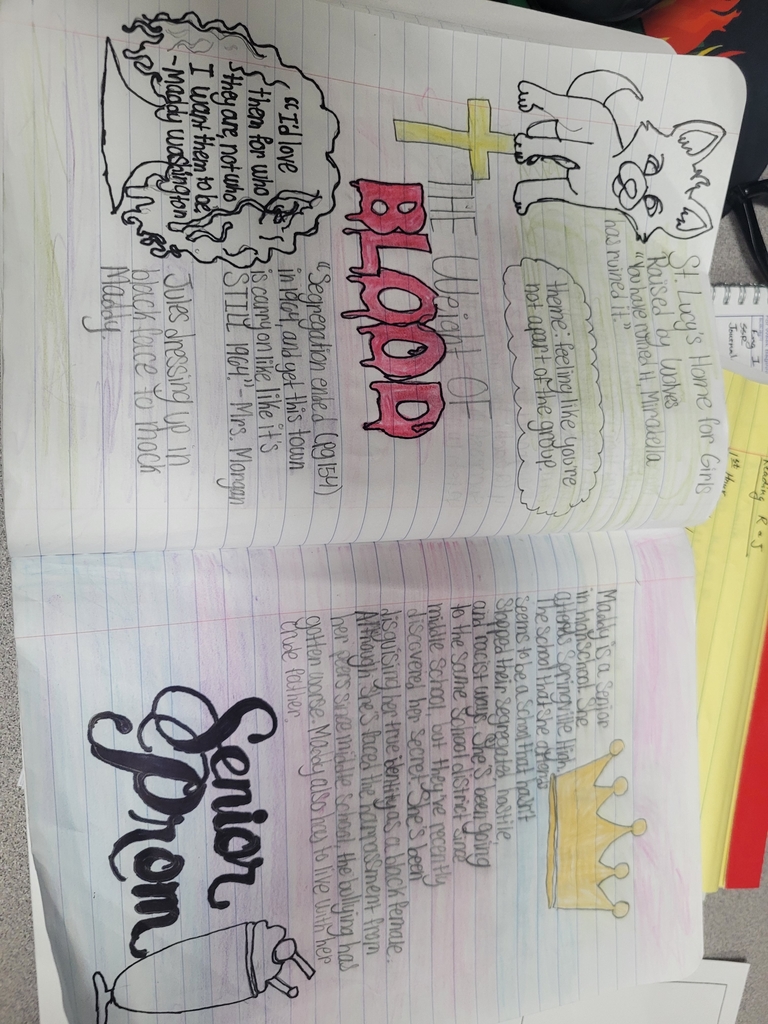 St. Lucy's Home for Girls
Raised by Wolves
"You have ruined it, Mirabella
has ruined it."
theme: feeling like you're
not apart of the group
THE Weight OF
BLOOD
"I'd love
them for who
they are, not who
I want them to be"
-Maddy Washington
"Segregation ended (pg 154)
in 1964, and yet this town
is carryon like like it's
STILL 1964." - Mrs. Morgan
Jules dressing up in
black face to mock
Maddy.
Maddy is a senior
in highschool. She
attends Springville High,
the school that she attends
seems to be a school that hasn't
stopped their segregated, hostile
and racist ways. She's been going
to the same school district since
middle school, but they've recently
discovered her secret. She's been
disguising her true identity as a black female.
Although she's faced the harrassment from
her peers since middle school, the bullying has
gotten worse. Maddy also has to live with her
crude father.
Senior
Prom
King I
SSR
Journal
Reading R=5
1st Hour